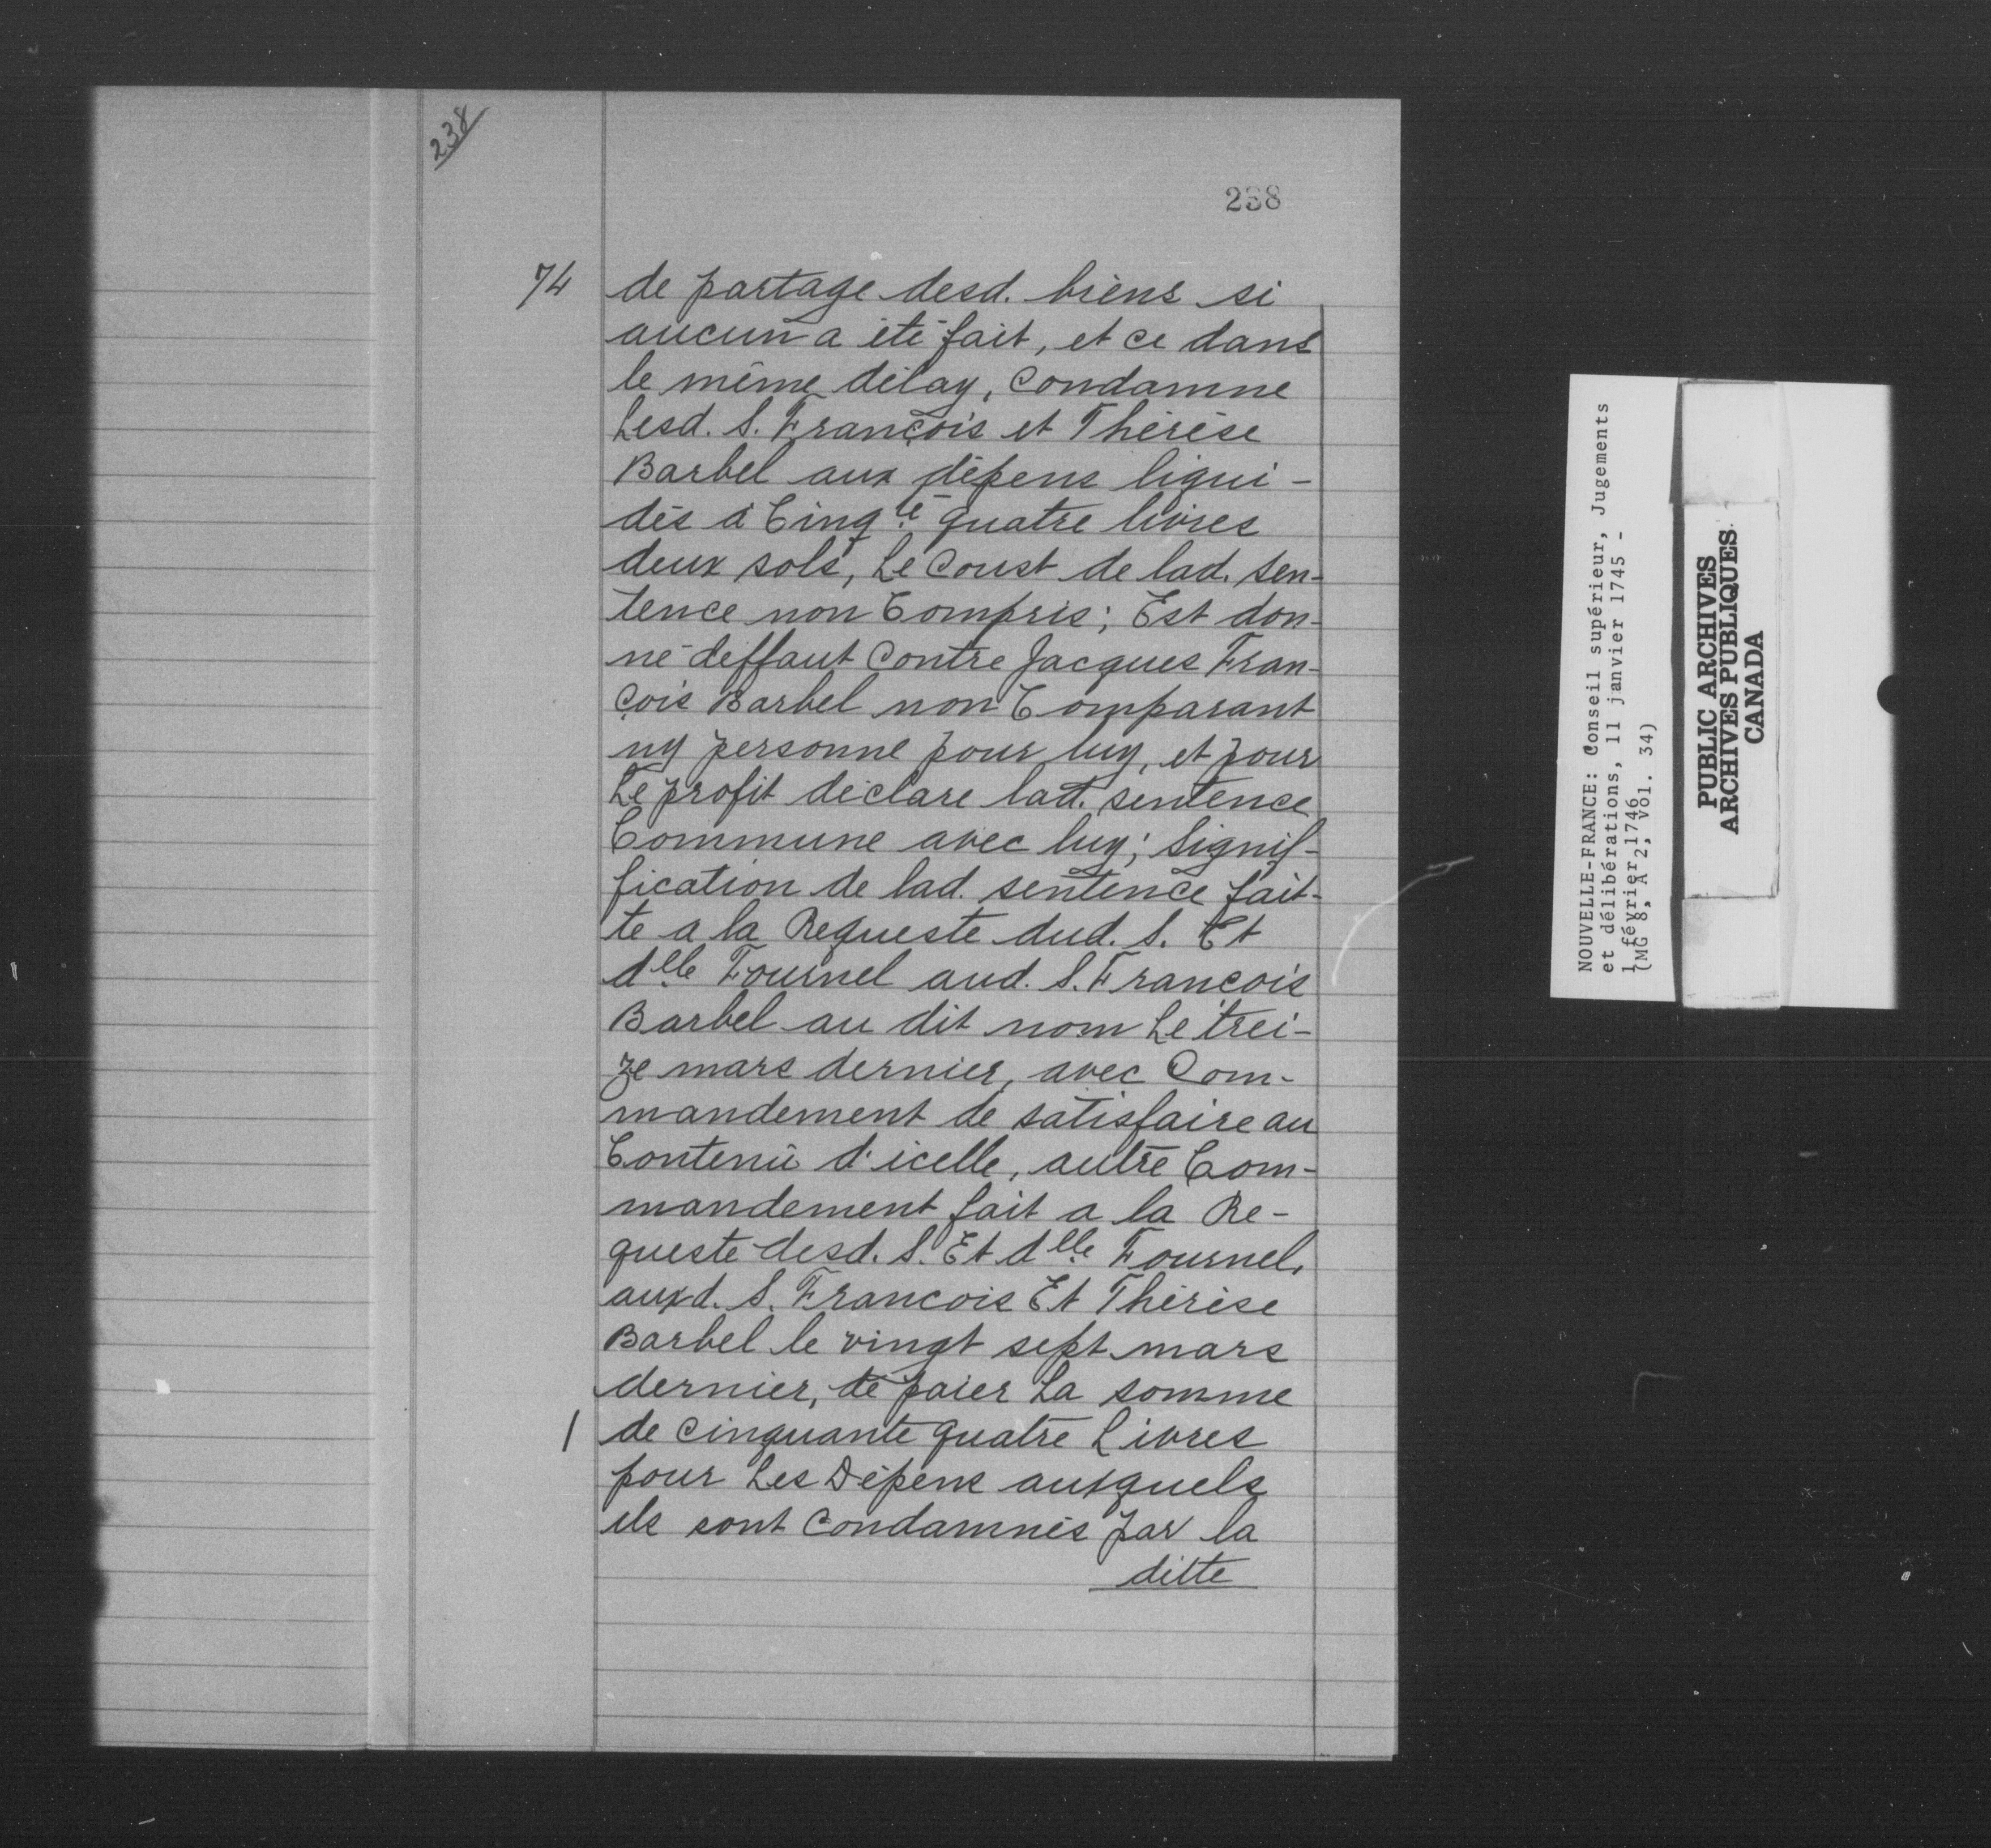 238
238
74
de partage desd. biens si
aucun a été fait, et ce dans
le même délay, Condamne
Lesd. S. François et Thérèse
Barbel aux dépens liqui-
dés à Cinqte quatre livres
deux sols, Le Coust de lad. sen-
tence non Compris; Est don-
né deffaut Contre Jacques Fran-
çois Barbel non Comparant
ny personne pour luy, et pour
Le profit déclare lad. sentence
Commune avec luy; Signif-
fication de lad. sentence fait-
te a la Requeste dud. S. Et
dlle Fournel aud. S. Francois
Barbel au dit nom Le trei-
ze mars dernier, avec Com-
mandement de satisfaire au
Contenû d'icelle, autre Com-
mandement fait a la Re-
queste desd. S. Et dlle Fournel,
auxd. S. Francois Et Thérèse
Barbel le vingt sept mars
dernier, de païer La somme
1
de cinquante quatre Livres
pour Les Dépens auxquels
ils sont Condamnés par la
ditte
NOUVELLE-FRANCE: Conseil supérieur, Jugements
et délibérations, 11 janvier 1745 -
1 février 1746
(MG 8, A 2, vol. 34)
PUBLIC ARCHIVES
ARCHIVES PUBLIQUES
CANADA